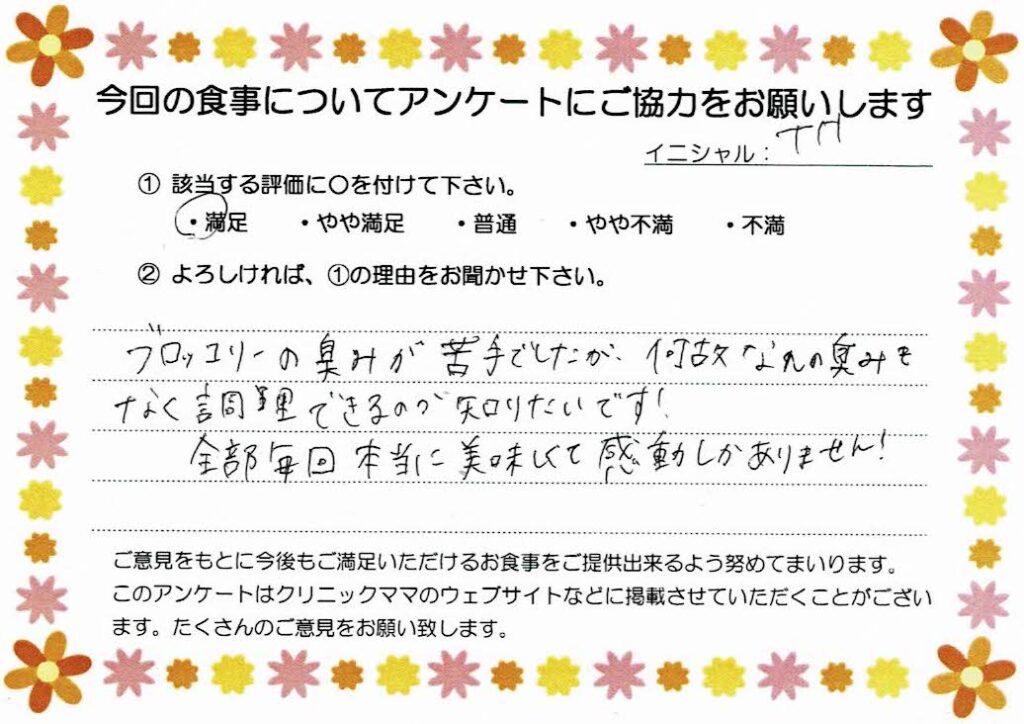 今回の食事についてアンケートにご協力をお願いします
イニシャル：TH
① 該当する評価に〇を付けて下さい。
・満足 ・やや満足 ・普通 ・やや不満 ・不満
② よろしければ、①の理由をお聞かせ下さい。
ブロッコリーの臭みが苦手でしたが、何故なんの臭みも
なく調理できるのか知りたいです!
全部毎回本当に美味しくて感動しかありません!
ご意見をもとに今後もご満足いただけるお食事をご提供出来るよう努めてまいります。
このアンケートはクリニックママのウェブサイトなどに掲載させていただくことがござい
ます。たくさんのご意見をお願い致します。